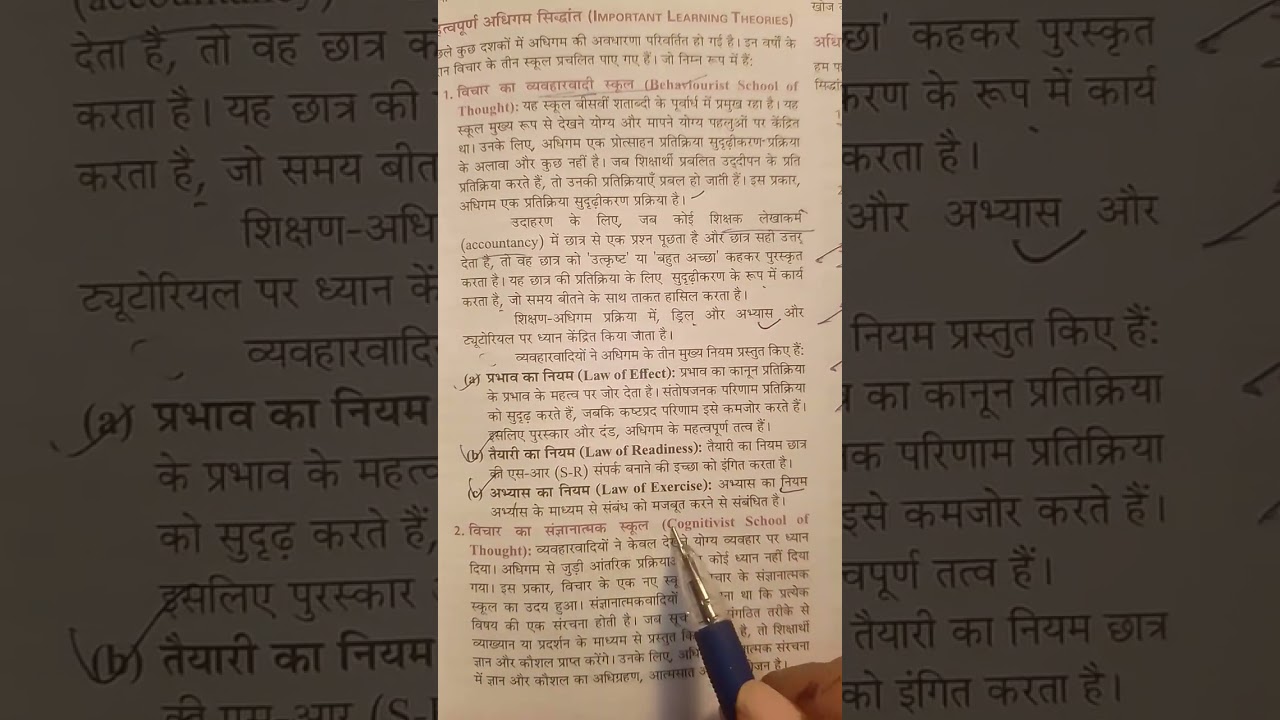 त्वपूर्ण अधिगम सिद्धांत (IMPORTANT LEARNING THEORIES)
छले कुछ दशकों में अधिगम की अवधारणा परिवर्तित हो गई है। इन वर्षों के
न विचार के तीन स्कूल प्रचलित पाए गए हैं। जो निम्न रूप में हैं:
1. विचार का व्यवहारवादी स्कूल (Behaviourist School of
Thought): यह स्कूल बीसवीं शताब्दी के पूर्वार्ध में प्रमुख रहा है। यह
स्कूल मुख्य रूप से देखने योग्य और मापने योग्य पहलुओं पर केंद्रित
था। उनके लिए, अधिगम एक प्रोत्साहन प्रतिक्रिया सुदृढ़ीकरण-प्रक्रिया
के अलावा और कुछ नहीं है। जब शिक्षार्थी प्रबलित उद्दीपन के प्रति
प्रतिक्रिया करते हैं, तो उनकी प्रतिक्रियाएँ प्रबल हो जाती हैं। इस प्रकार,
अधिगम एक प्रतिक्रिया सुदृढ़ीकरण प्रक्रिया है।
उदाहरण के लिए, जब कोई शिक्षक लेखाकर्म
(accountancy) में छात्र से एक प्रश्न पूछता है और छात्र सही उत्तर
देता है, तो वह छात्र को 'उत्कृष्ट' या 'बहुत अच्छा' कहकर पुरस्कृत
करता है। यह छात्र की प्रतिक्रिया के लिए सुदृढ़ीकरण के रूप में कार्य
करता है, जो समय बीतने के साथ ताकत हासिल करता है।
शिक्षण-अधिगम प्रक्रिया में, ड्रिल और अभ्यास और
ट्यूटोरियल पर ध्यान केंद्रित किया जाता है।
व्यवहारवादियों ने अधिगम के तीन मुख्य नियम प्रस्तुत किए हैं:
(a) प्रभाव का नियम (Law of Effect): प्रभाव का कानून प्रतिक्रिया
के प्रभाव के महत्व पर जोर देता है। संतोषजनक परिणाम प्रतिक्रिया
को सुदृढ़ करते हैं, जबकि कष्टप्रद परिणाम इसे कमजोर करते हैं।
इसलिए पुरस्कार और दंड, अधिगम के महत्वपूर्ण तत्व हैं।
(b) तैयारी का नियम (Law of Readiness): तैयारी का नियम छात्र
की एस-आर (S-R) संपर्क बनाने की इच्छा को इंगित करता है।
(c) अभ्यास का नियम (Law of Exercise): अभ्यास का नियम
अभ्यास के माध्यम से संबंध को मजबूत करने से संबंधित है।
2. विचार का संज्ञानात्मक स्कूल (Cognitivist School of
Thought): व्यवहारवादियों ने केवल देखने योग्य व्यवहार पर ध्यान
दिया। अधिगम से जुड़ी आंतरिक कोई ध्यान नहीं दिया
गया। इस प्रकार, विचार के एक नए के संज्ञानात्मक
स्कूल का उदय हुआ। संज्ञानात्मकवादियों था कि प्रत्येक
विषय की एक संरचना होती है। जब तरीके से
व्याख्यान या प्रदर्शन के माध्यम से प्रस्तुत है, तो शिक्षार्थी
ज्ञान और कौशल प्राप्त करेंगे। उनके लिए, संरचना
में ज्ञान और कौशल का अधिग्रहण, है।